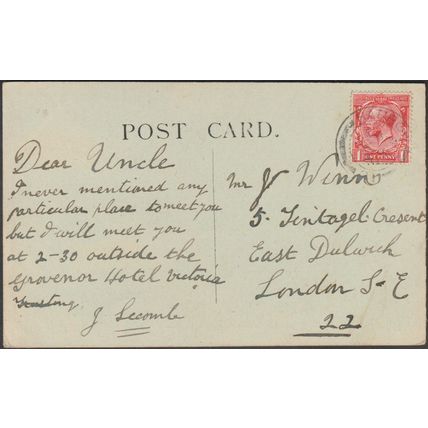 POST CARD.
Dear Uncle
I never mentioned any
particular place to meet you
but I will meet you
at 2-30 outside the
Grovenor Hotel Victoria
J Secomb
Mr J Winn
5. Tintagel Cresent
East Dulwich
London S-E
22
1 ONE PENNY 1